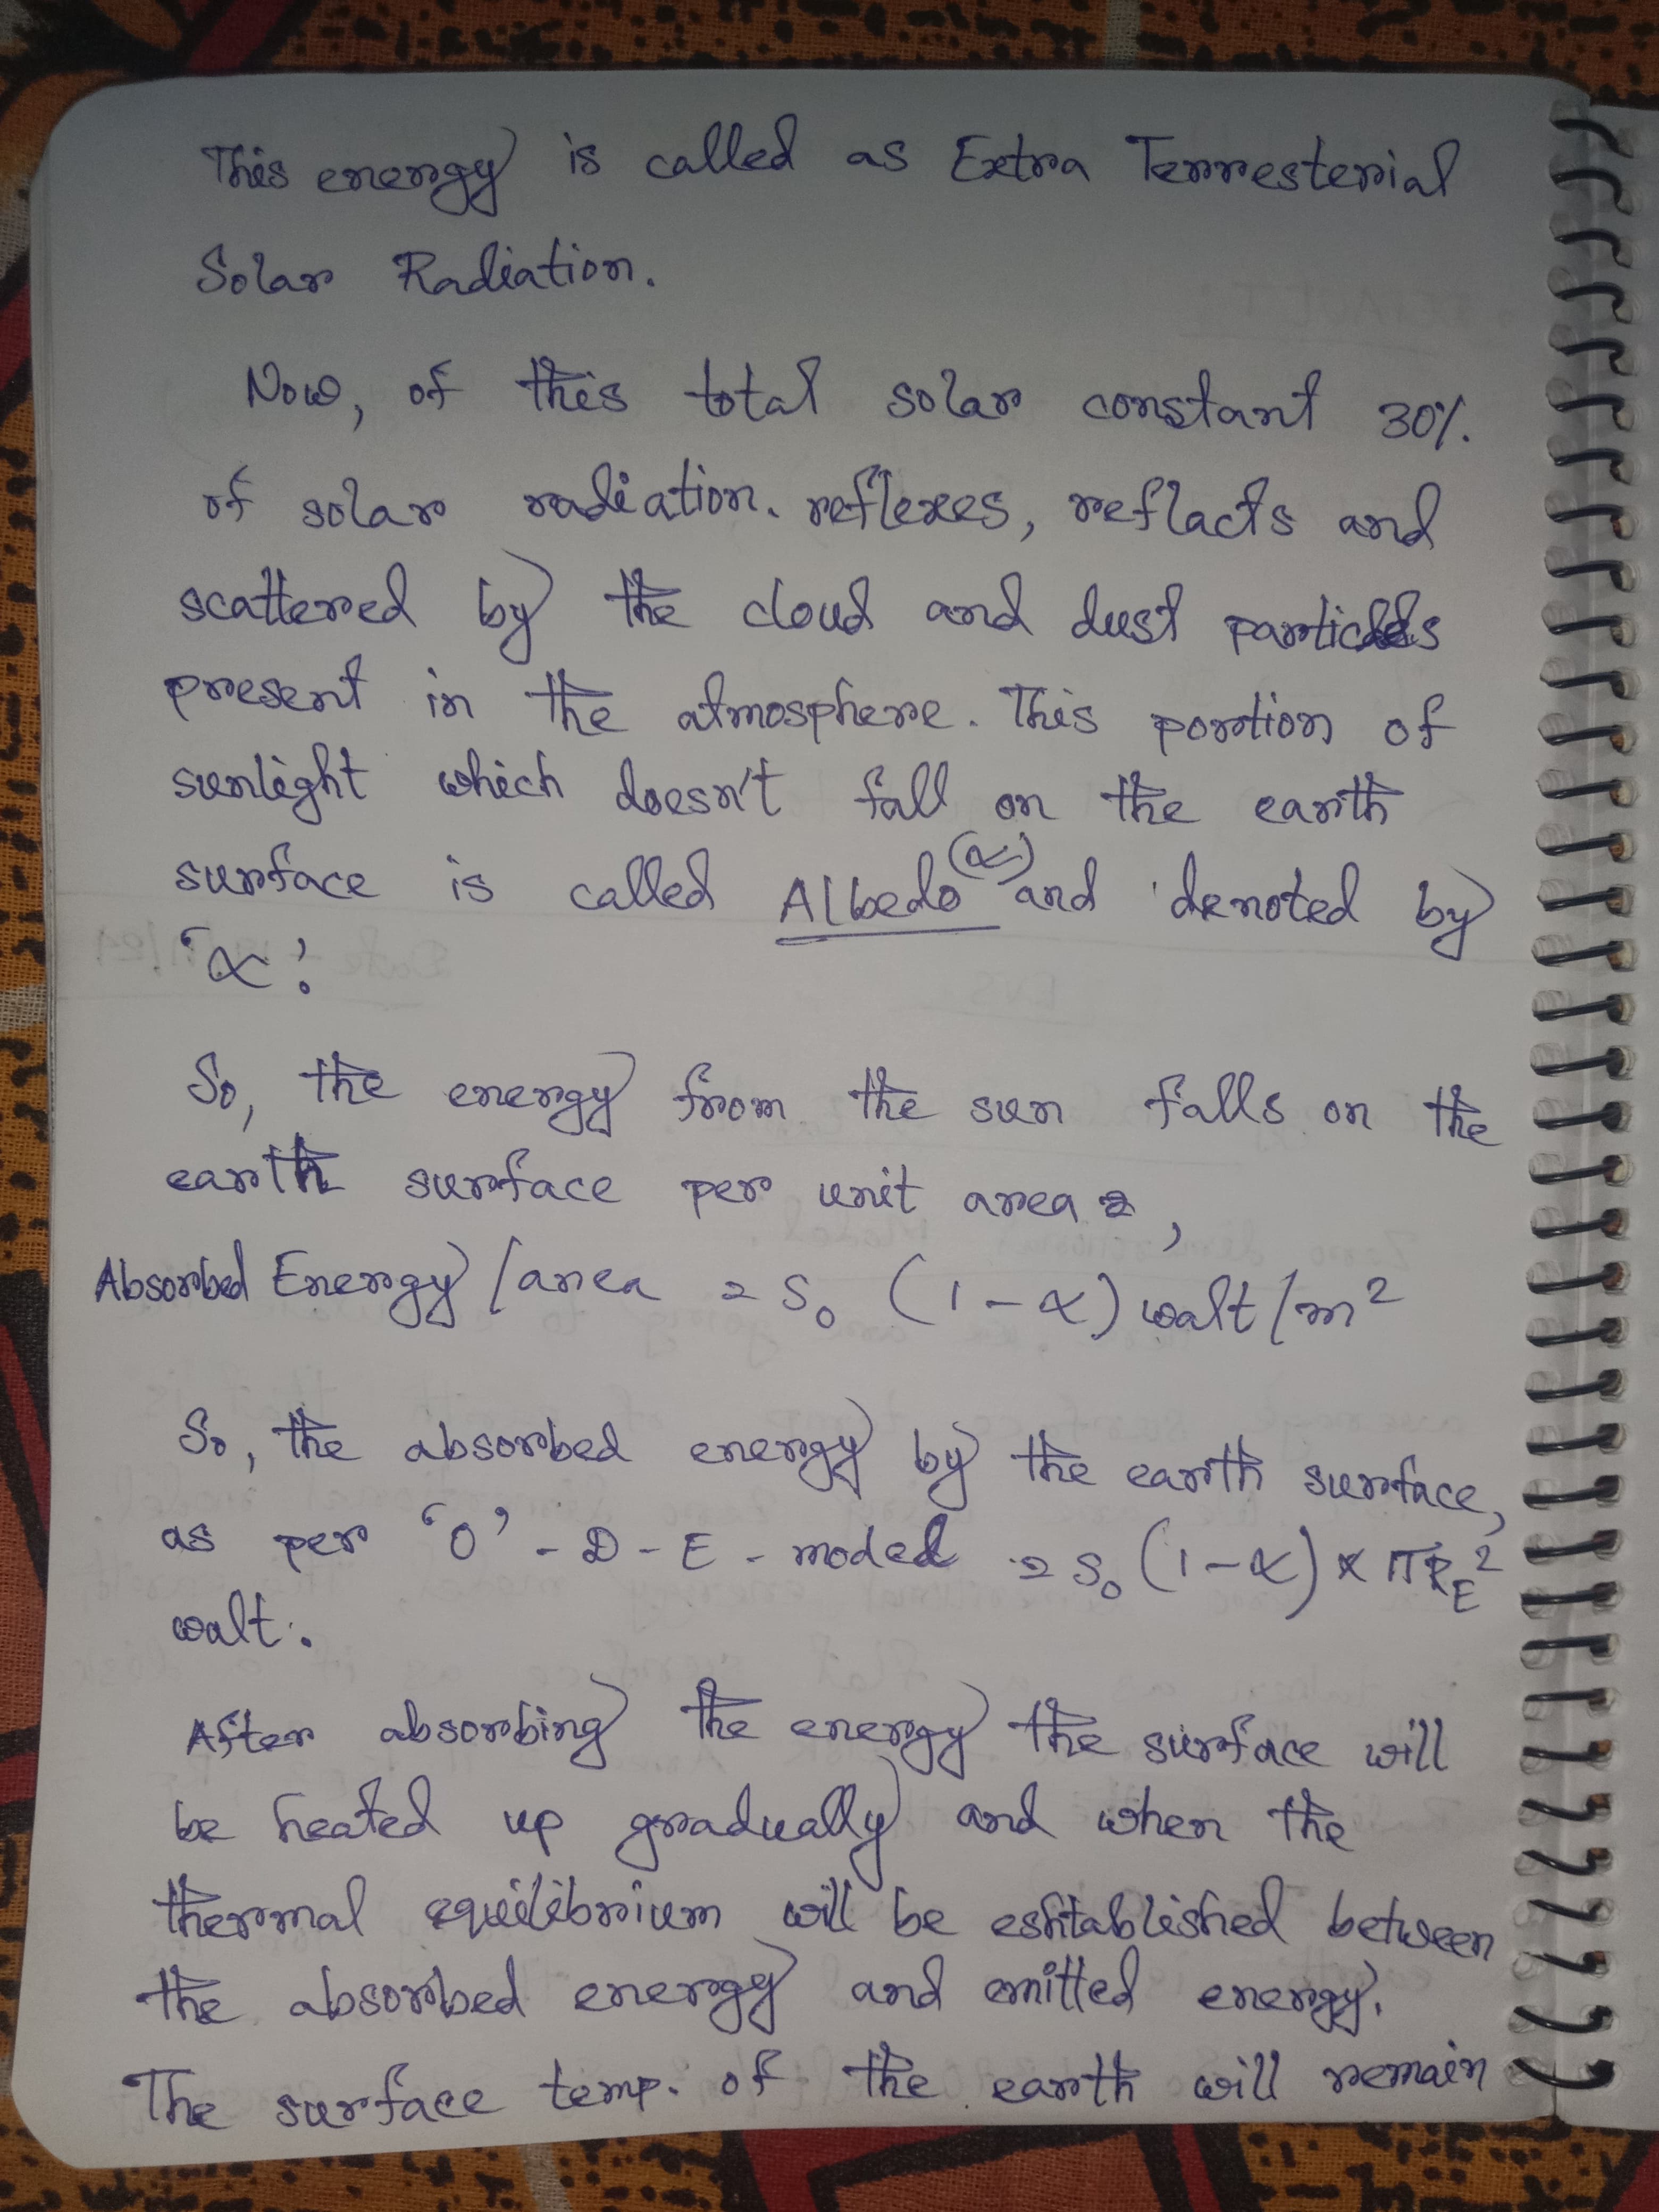 This energy is called as Extra Terresterial
Solar Radiation.
Now, of this total solar constant 30%.
of solar radiation. reflexes, reflacts and
scattered by the cloud and dust particles
present in the atmosphere. This portion of
sunlight which doesn't fall on the earth
surface is called Albedo (α) and denoted by
'α'.
So, the energy from the sun falls on the
earth surface per unit area =,
Absorbed Energy / area = S₀ (1 - α) watt / m²
So, the absorbed energy by the earth surface,
as per '0' - D - E - model = S₀ (1 - α) × πR_E²
watt.
After absorbing the energy the surface will
be heated up gradually and when the
thermal equilibrium will be eshtablished between
the absorbed energy and emitted energy.
The surface temp. of the earth will remain